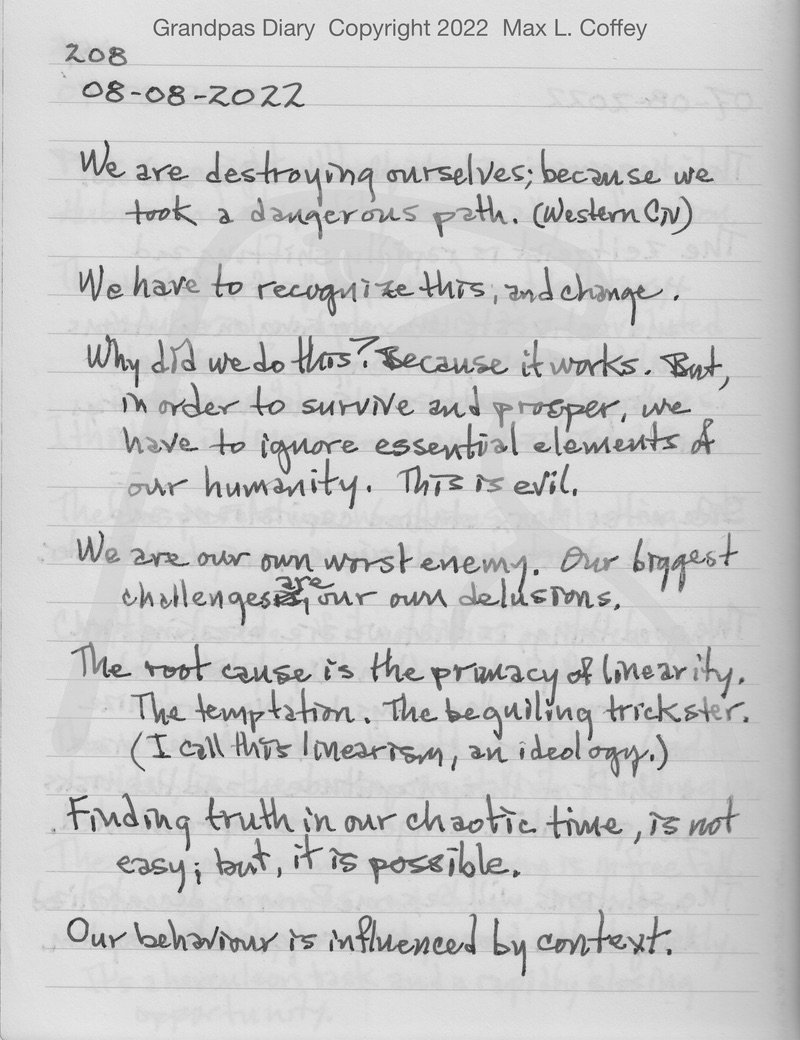 Grandpas Diary Copyright 2022 Max L. Coffey
208
08-08-2022
We are destroying ourselves; because we
took a dangerous path. (Western Civ)
We have to recognize this, and change.
Why did we do this? Because it works. But,
in order to survive and prosper, we
have to ignore essential elements of
our humanity. This is evil.
We are our own worst enemy. Our biggest
challenges are our own delusions.
The root cause is the primacy of linearity.
The temptation. The beguiling trickster.
(I call this linearism, an ideology.)
Finding truth in our chaotic time, is not
easy; but, it is possible.
Our behaviour is influenced by context.